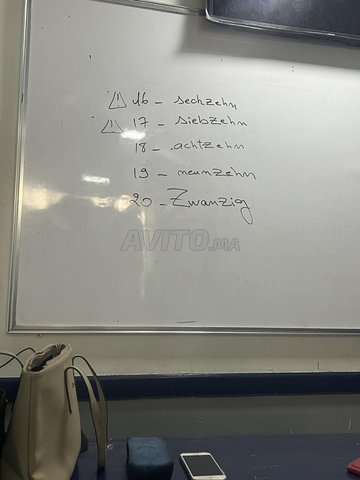 ⚠ 16 - sechzehn
⚠ 17 - siebzehn
18 - achtzehn
19 - neunzehn
20 - Zwanzig
AVITO.MA